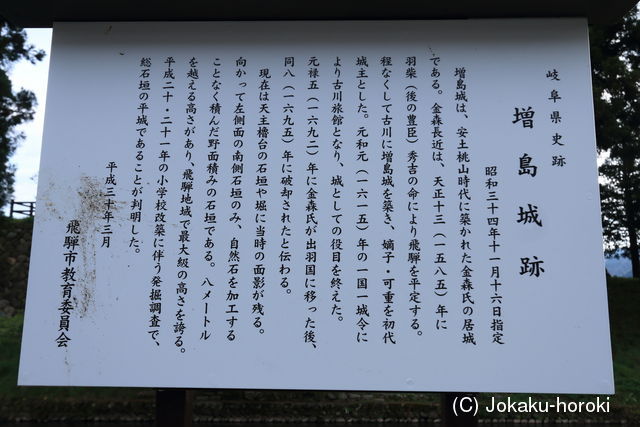 岐阜県史跡
増島城跡
昭和三十四年十一月十六日指定
増島城は、安土桃山時代に築かれた金森氏の居城
である。金森長近は、天正十三（一五八五）年に
羽柴（後の豊臣）秀吉の命により飛騨を平定する。
程なくして古川に増島城を築き、嫡子・可重を初代
城主とした。元和元（一六一五）年の一国一城令に
より古川旅館となり、城としての役目を終えた。
元禄五（一六九二）年に金森氏が出羽国に移った後、
同八（一六九五）年に破却されたと伝わる。
現在は天主櫓台の石垣や堀に当時の面影が残る。
向かって左側面の南側石垣のみ、自然石を加工する
ことなく積んだ野面積みの石垣である。八メートル
を越える高さがあり、飛騨地域で最大級の高さを誇る。
平成二十・二十一年の小学校改築に伴う発掘調査で、
総石垣の平城であることが判明した。
平成三十年三月
飛騨市教育委員会
(C) Jokaku-horoki